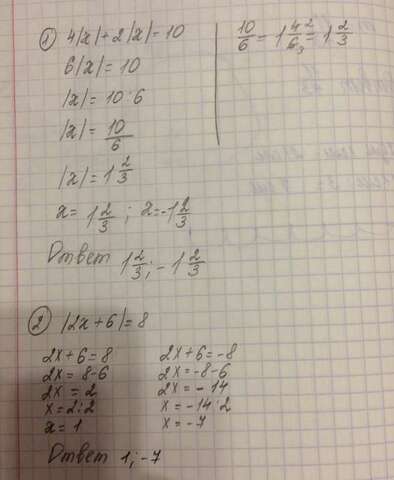 1) 4|x| + 2|x| = 10
6|x| = 10
|x| = 10:6
|x| = 10/6
|x| = 1 2/3
x = 1 2/3 ; x = -1 2/3
Ответ 1 2/3 ; -1 2/3
10/6 = 1 4²/6₃ = 1 2/3
2) |2x+6| = 8
2x+6=8
2x = 8-6
2x = 2
x = 2:2
x = 1
2x+6=-8
2x = -8-6
2x = -14
x = -14:2
x = -7
Ответ 1; -7